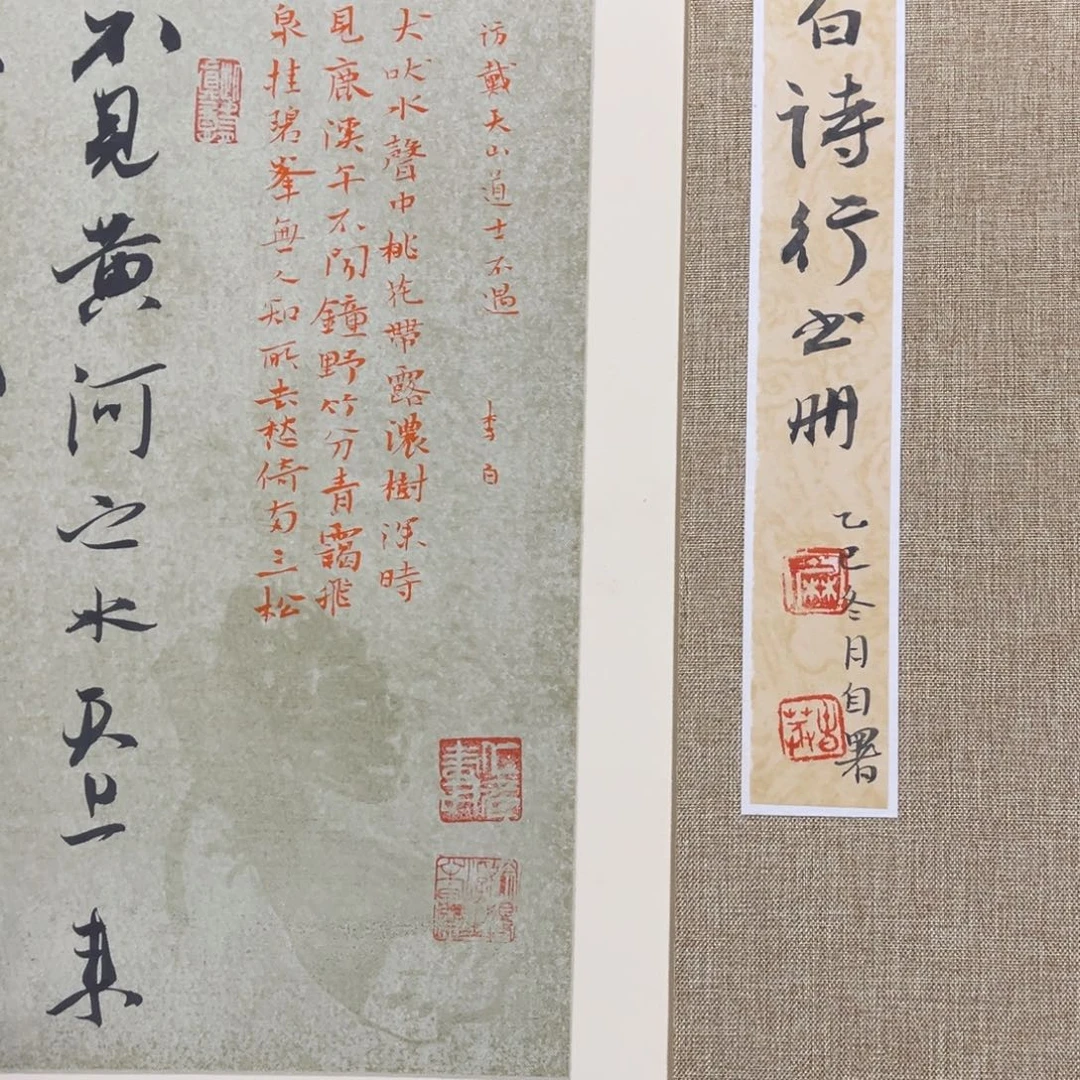 白诗行书册
乙巳冬月自署
访戴天山道士不遇 李白
犬吠水聲中桃花帶露濃樹深時
見鹿溪午不闻鐘野竹分青靄飛
泉挂碧峯無人知所去愁倚两三松
不見黄河之水天上来